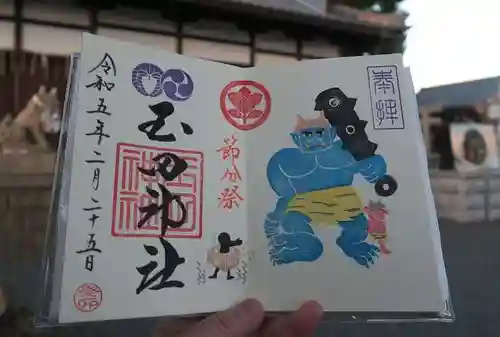 奉拝
節分祭
玉田神社
玉田神社
令和五年二月二十五日